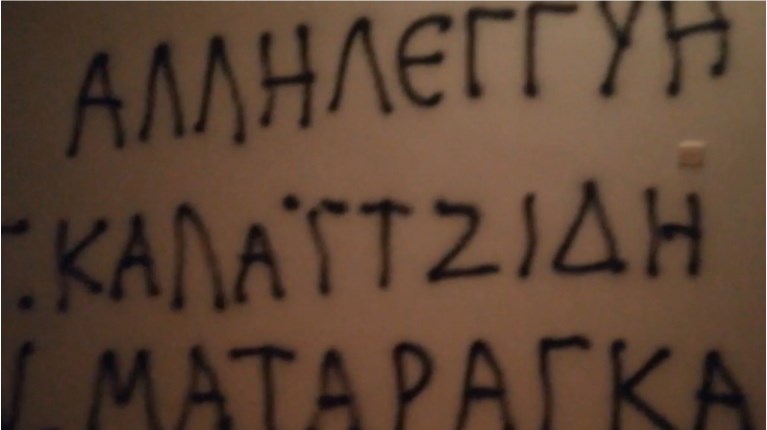 ΑΛΛΗΛΕΓΓΥΗ
ΚΑΛΑΪΤΖΙΔΗ
ΜΑΤΑΡΑΓΚΑ